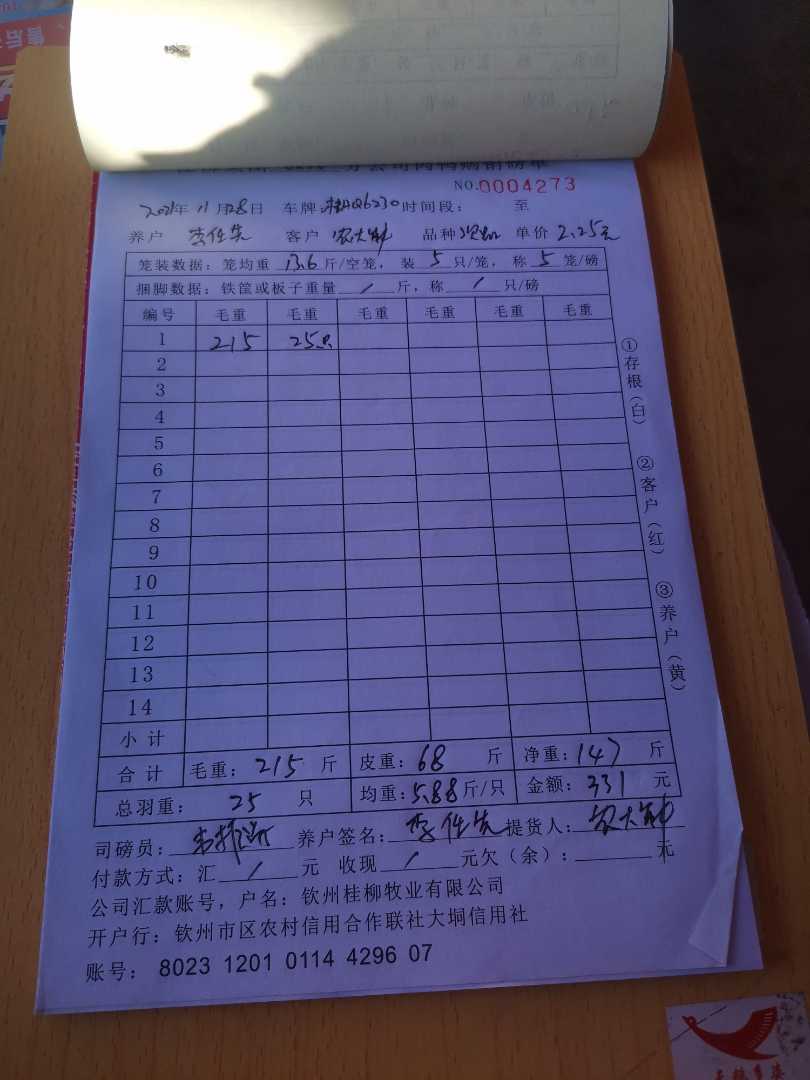 分公司肉鸭购销磅单
NO.0004273
2021年 11月28日 车牌: 桂NQ6230 时间段: 至
养户 客户 农大 品种 单价 2.25元
笼装数据: 笼均重 13.6 斤/空笼, 装 5 只/笼, 称 5 笼/磅
捆脚数据: 铁筐或板子重量 / 斤, 称 / 只/磅
编号 毛重 毛重 毛重 毛重 毛重 毛重
1 215 25只
2
3
4
5
6
7
8
9
10
11
12
13
14
小计
合计 毛重: 215 斤 皮重: 68 斤 净重: 147 斤
总羽重: 25 只 均重: 5.88 斤/只 金额: 331 元
司磅员: 养户签名: 提货人: 农大
付款方式: 汇 / 元 收现 / 元欠(余): 元
公司汇款账号, 户名: 钦州桂柳牧业有限公司
开户行: 钦州市区农村信用合作联社大垌信用社
账号: 8023 1201 0114 4296 07
①存根(白)
②客户(红)
③养户(黄)
售后